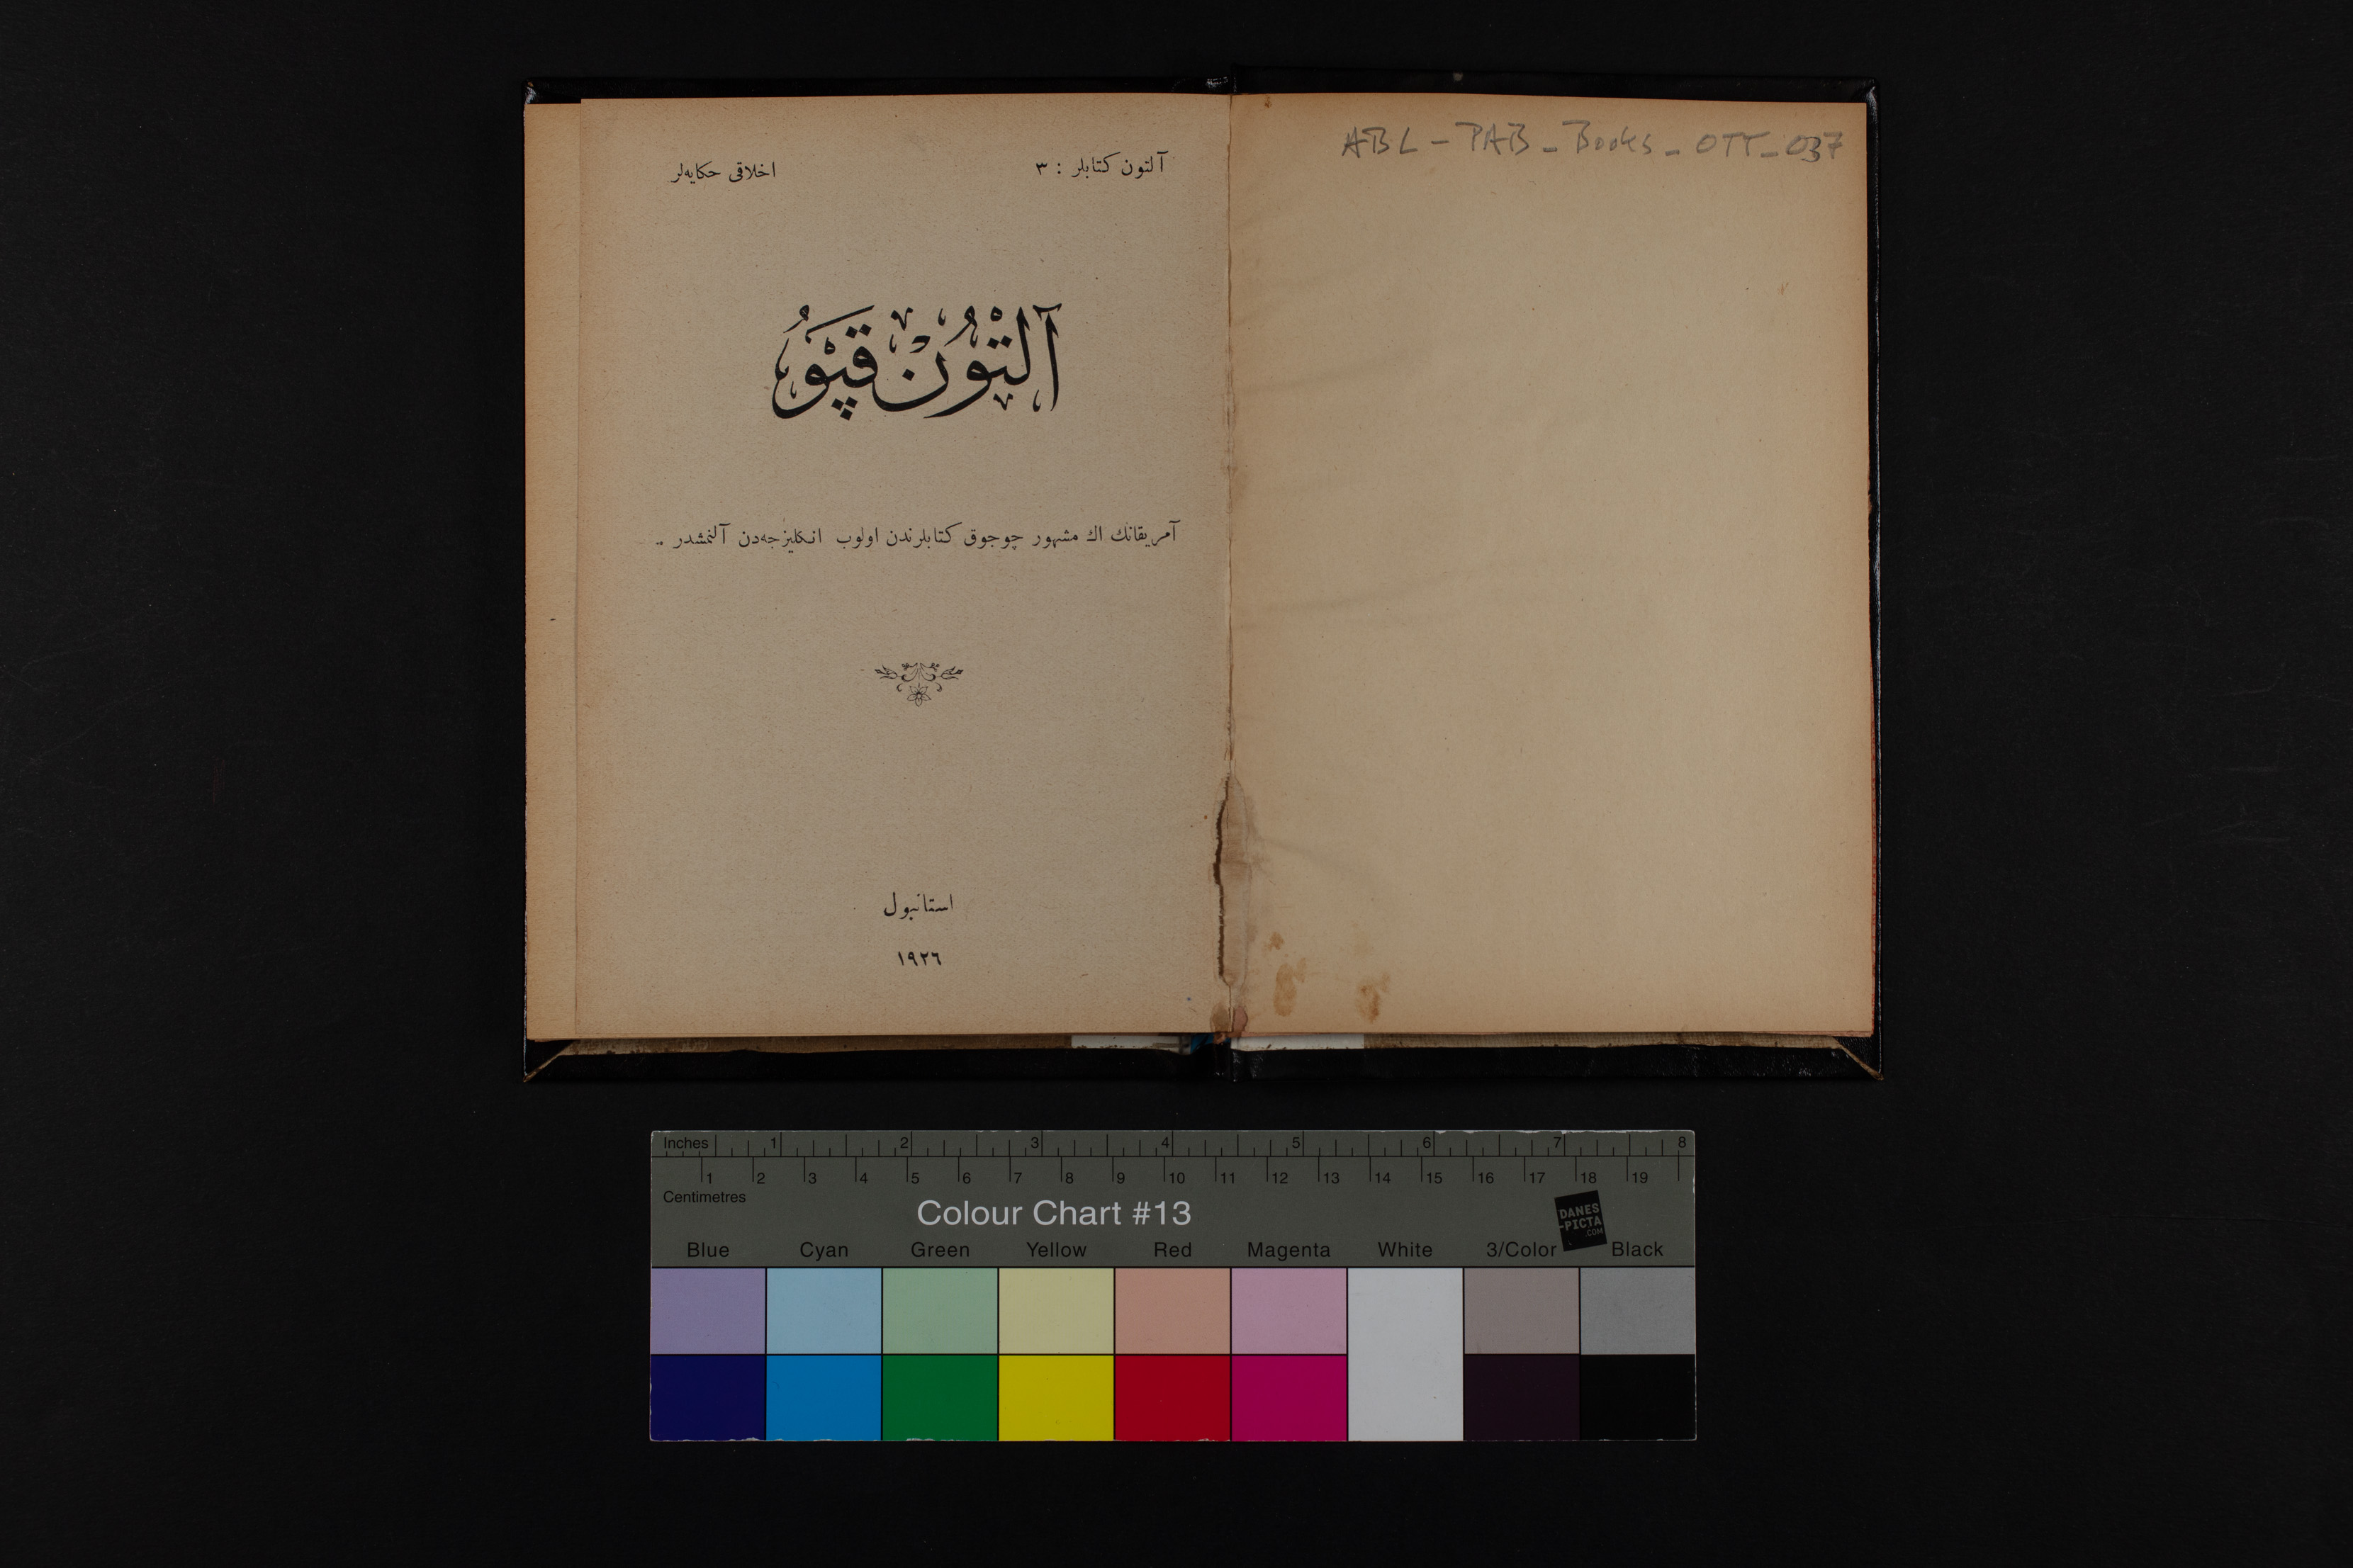 ABL - PAB - Books - OTT - 037
آلتون كتابلر : ٣
اخلاقی حكايه‌لر
آلتون قپو
آمريقانك اك مشهور چوجوق كتابلرندن اولوب انكليزجه‌دن آلنمشدر ..
استانبول
١٩٢٦
Inches 1 2 3 4 5 6 7 8
1 2 3 4 5 6 7 8 9 10 11 12 13 14 15 16 17 18 19
Centimetres
Colour Chart #13
DANES
-PICTA
.COM
Blue Cyan Green Yellow Red Magenta White 3/Color Black